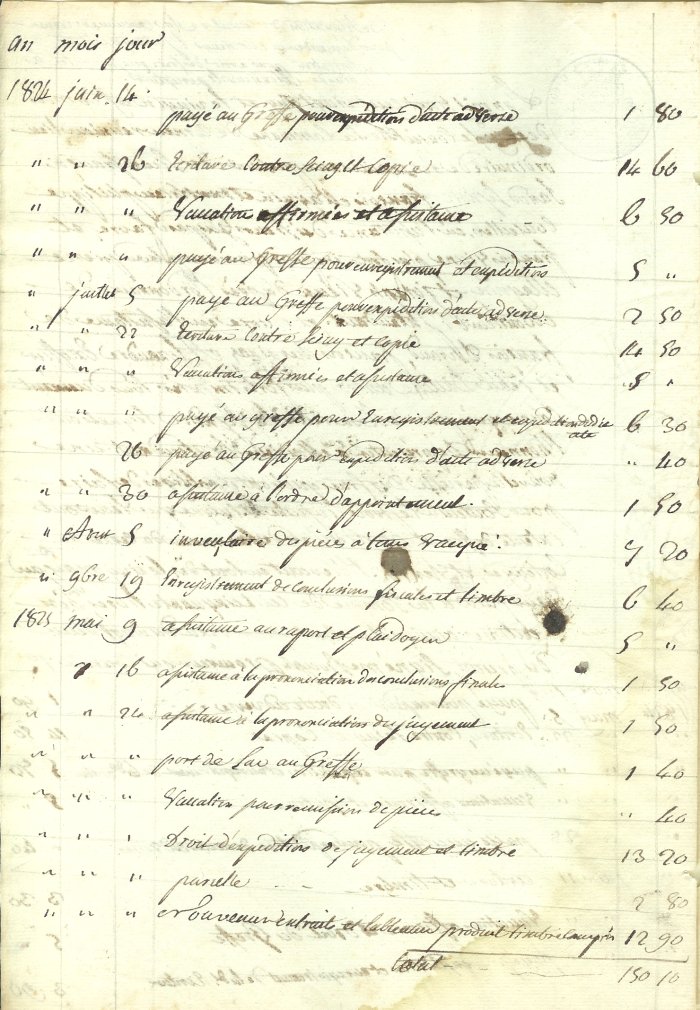 an mois jour
1824 juin 14 payé au Greffe pour expédition d'acte adverse 1 80
" " 26 Ecriture contre seing et Copie 14 60
" " " Vacation affirmées et assistance 6 50
" " " payé au Greffe pour enregistrement et expédition 5 "
" juillet 5 payé au Greffe pour expédition d'acte adverse 2 50
" " 22 Ecriture Contre Seing et Copie 14 50
" " " Vacations affirmées et assistance 5 "
" " " payé au greffe pour Enregistrement et expédition dudit acte 6 30
26 payé au Greffe pour expédition d'acte adverse " 40
" " 30 assistance à l'ordre d'appointement 1 50
" Aout 5 inventaire des pièces à 7 20
" 9bre 19 Enregistrement de conclusions fiscales et timbre 6 40
1825 mai 9 assistance au raport et plaidoyer 5 "
" 16 assistance à la prononciation des conclusions finales 1 50
" " 24 assistance à la prononciation du jugement 1 50
" " " port de Sac au Greffe 1 40
" " " Vacation pour remission de pièces " 40
" " " Droit d'expédition de jugement et timbre 13 20
" " " parcelle 2 80
" " " extrait et tableau produit timbre compris 12 90
total 150 10